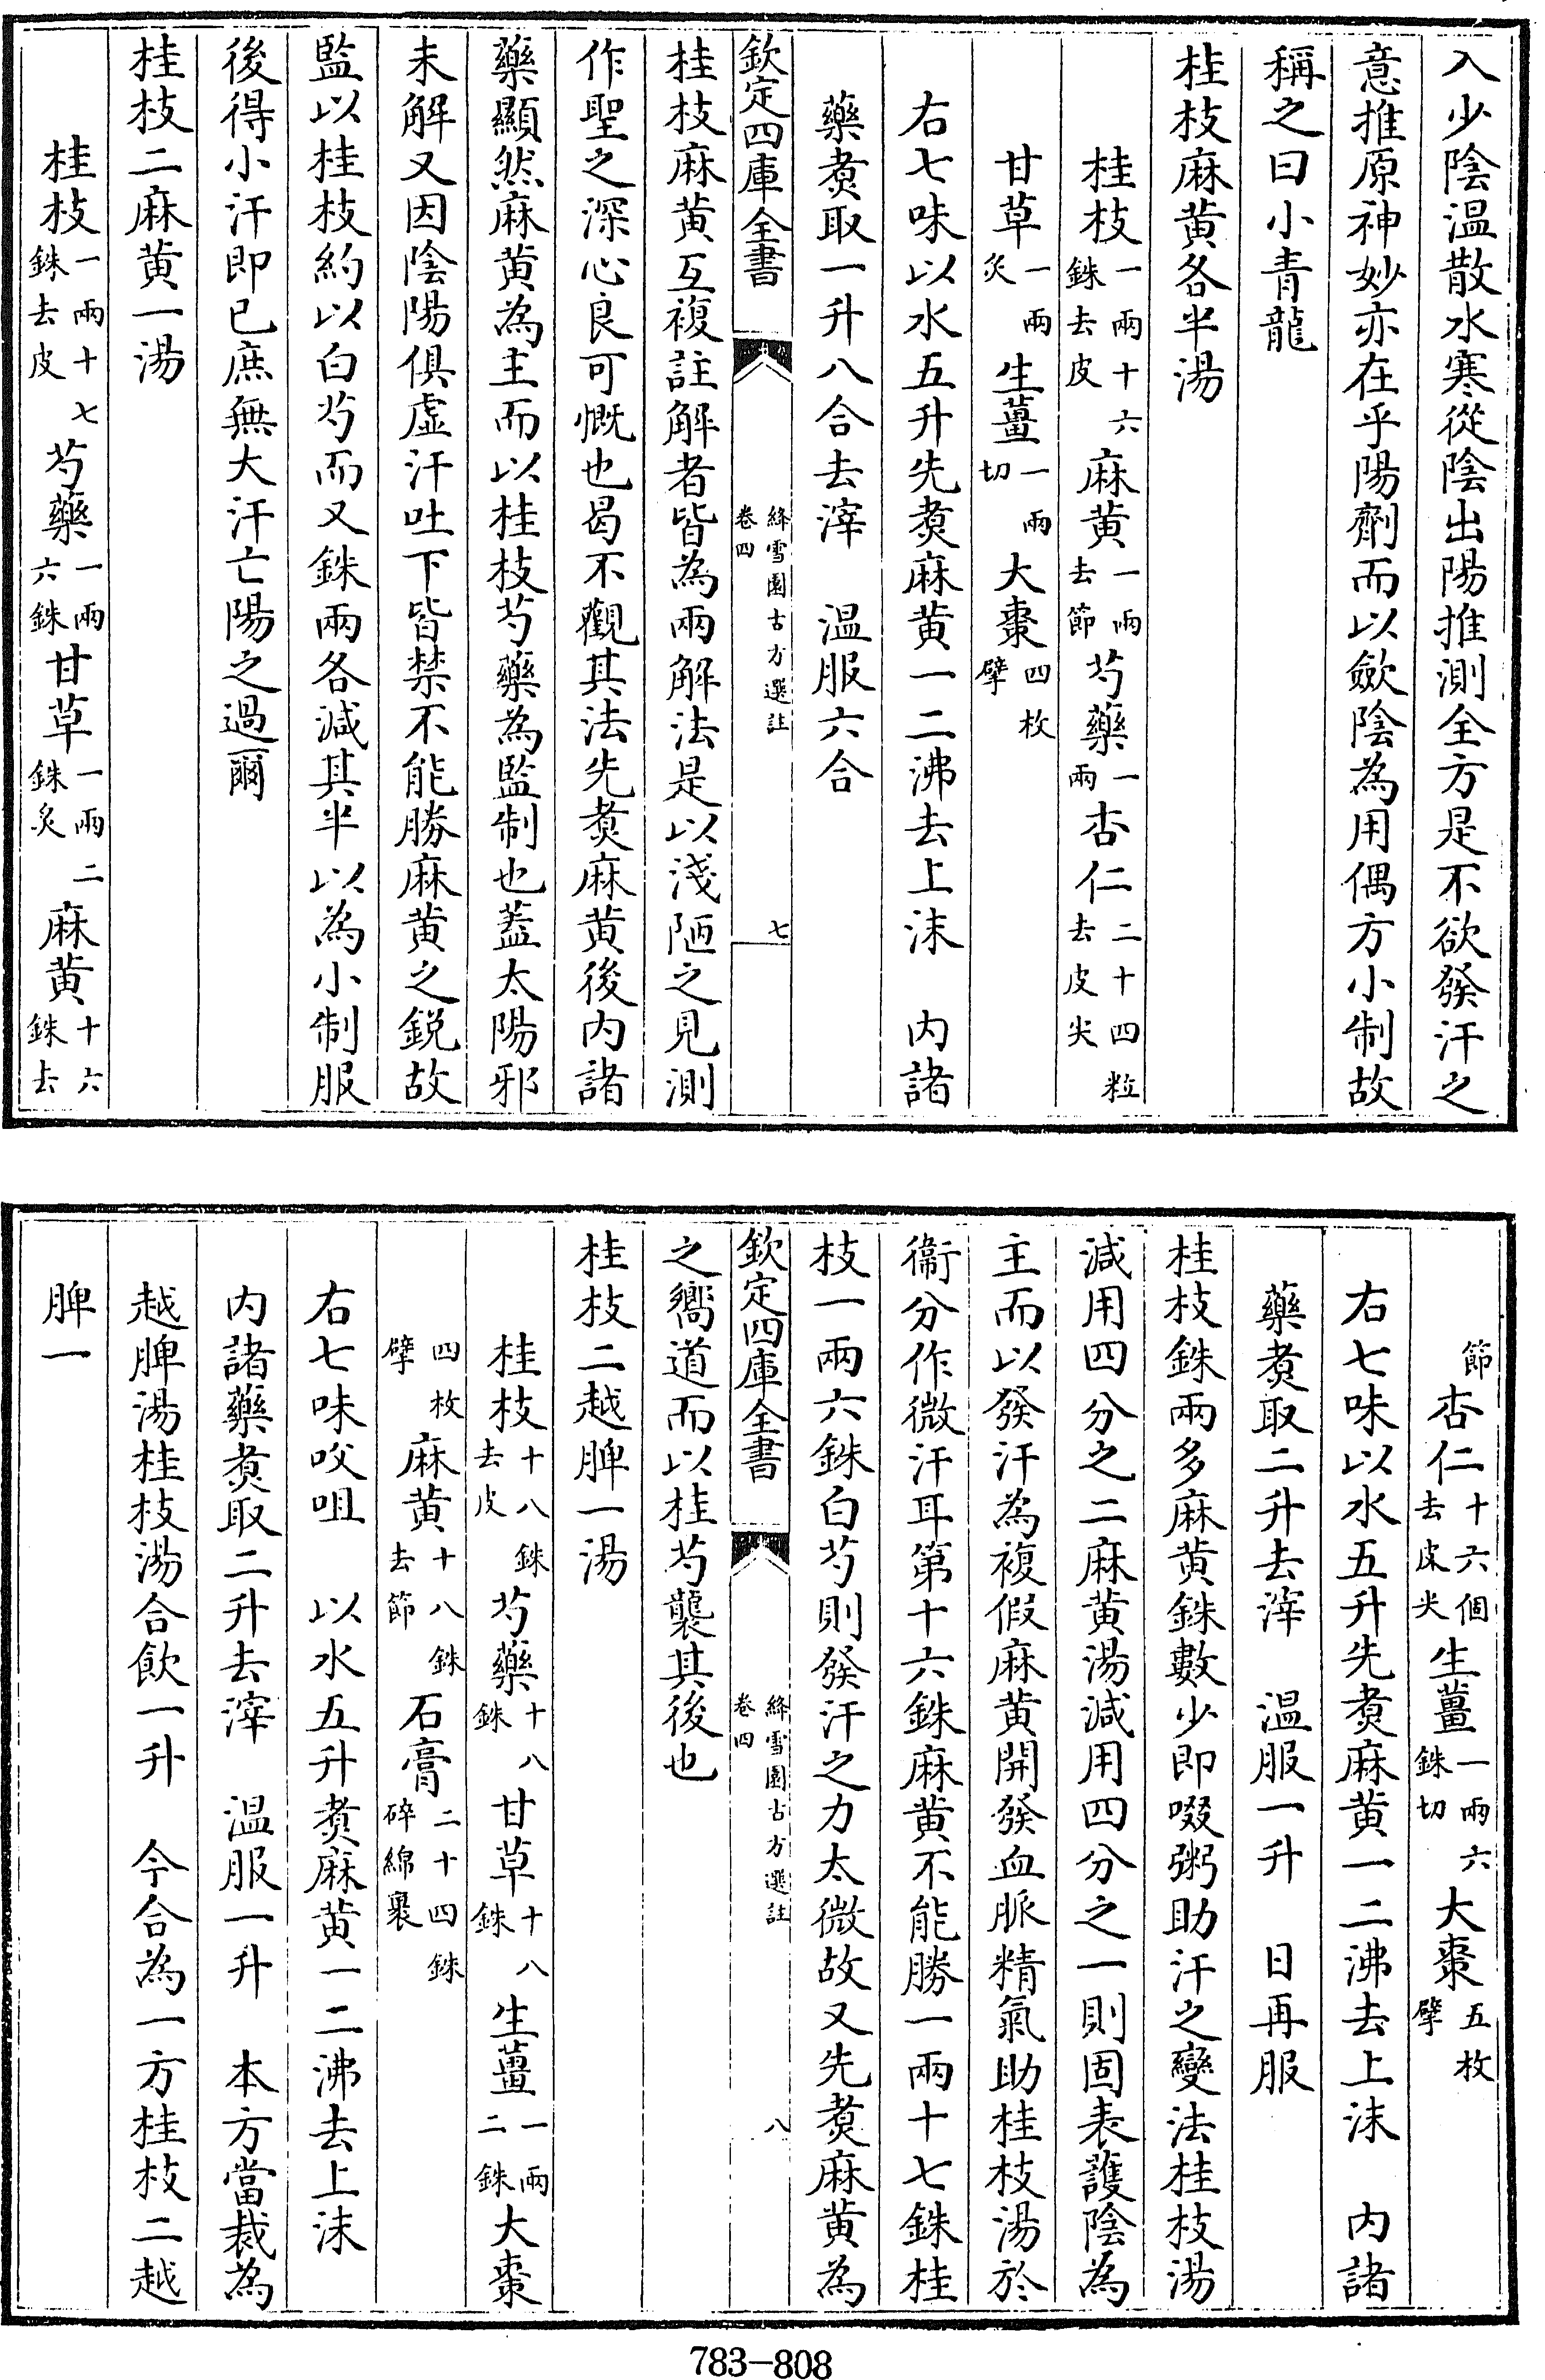 入少陰温散水寒從陰出陽推測全方是不欲發汗之
意推原神妙亦在乎陽劑而以斂陰為用偶方小制故
稱之曰小青龍
桂枝麻黄各半湯
桂枝一兩十六銖去皮 麻黄一兩去節 芍藥一兩 杏仁二十四粒去皮尖
甘草一兩炙 生薑一兩切 大棗四枚擘
右七味以水五升先煑麻黄一二沸去上沫 内諸
藥煑取一升八合去滓 温服六合
欽定四庫全書 絳雪園古方選註卷四 七
桂枝麻黄互複註解者皆為兩解法是以淺陋之見測
作聖之深心良可慨也曷不觀其法先煑麻黄後内諸
藥顯然麻黄為主而以桂枝芍藥為監制也葢太陽邪
未解又因陰陽俱虚汗吐下皆禁不能勝麻黄之鋭故
監以桂枝約以白芍而又銖兩各減其半以為小制服
後得小汗即已庶無大汗亡陽之過爾
桂枝二麻黄一湯
桂枝一兩十七銖去皮 芍藥一兩六銖 甘草一兩二銖炙 麻黄十六銖去
節 杏仁十六個去皮尖 生薑一兩六銖切 大棗五枚擘
右七味以水五升先煑麻黄一二沸去上沫 内諸
藥煑取二升去滓 温服一升 日再服
桂枝銖兩多麻黄銖數少即啜粥助汗之變法桂枝湯
減用四分之二麻黄湯減用四分之一則固表護陰為
主而以發汗為複假麻黄開發血脈精氣助桂枝湯於
衞分作微汗耳第十六銖麻黄不能勝一兩十七銖桂
枝一兩六銖白芍則發汗之力太微故又先煑麻黄為
欽定四庫全書 絳雪園古方選註卷四 八
之嚮道而以桂芍襲其後也
桂枝二越脾一湯
桂枝十八銖去皮 芍藥十八銖 甘草十八銖 生薑一兩二銖 大棗
四枚擘 麻黄十八銖去節 石膏二十四銖碎綿裹
右七味㕮咀 以水五升煑麻黄一二沸去上沫
内諸藥煑取二升去滓 温服一升 本方當裁為
越脾湯桂枝湯合飲一升 今合為一方桂枝二越
脾一
783-808